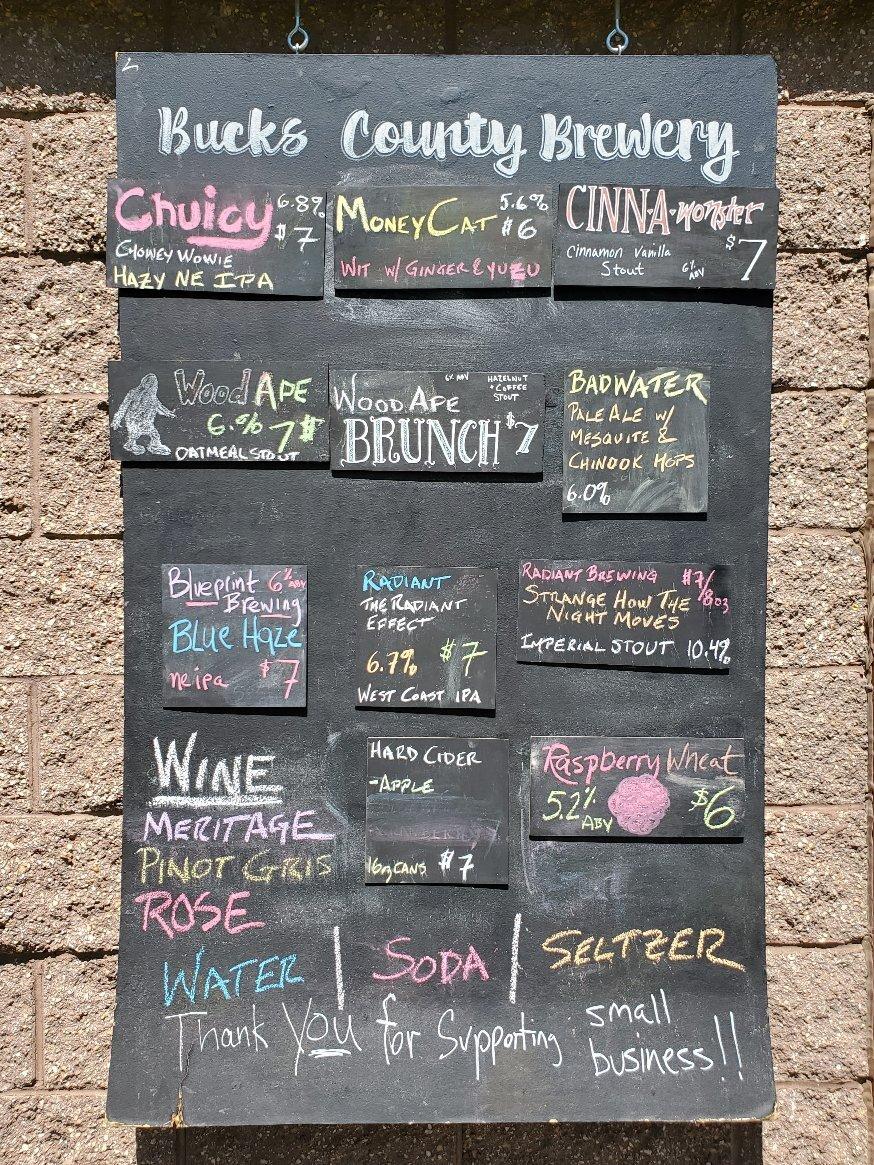 Bucks County Brewery
Chuicy 6.8%
$7
Chowey Wowie
Hazy NE IPA
MoneyCat 5.6%
$6
Wit w/ Ginger & Yuzu
CINNA-monster
$7
Cinnamon Vanilla
Stout 6% ABV
Wood Ape
6.% 7$
Oatmeal Stout
6% ABV Hazelnut
+ Coffee
Stout
Wood Ape
BRUNCH $7
Badwater
Pale Ale w/
Mesquite &
Chinook Hops
6.0%
Blueprint 6% ABV
Brewing
Blue Haze
neipa $7
Radiant
The Radiant
Effect
6.7% $7
West Coast IPA
Radiant Brewing $7/8oz
Strange How The
Night Moves
Imperial Stout 10.4%
WINE
MERITAGE
PINOT GRIS
ROSE
Hard Cider
-Apple
16oz cans $7
Raspberry Wheat
5.2% ABV $6
WATER | SODA | SELTZER
Thank you for Supporting small
business!!